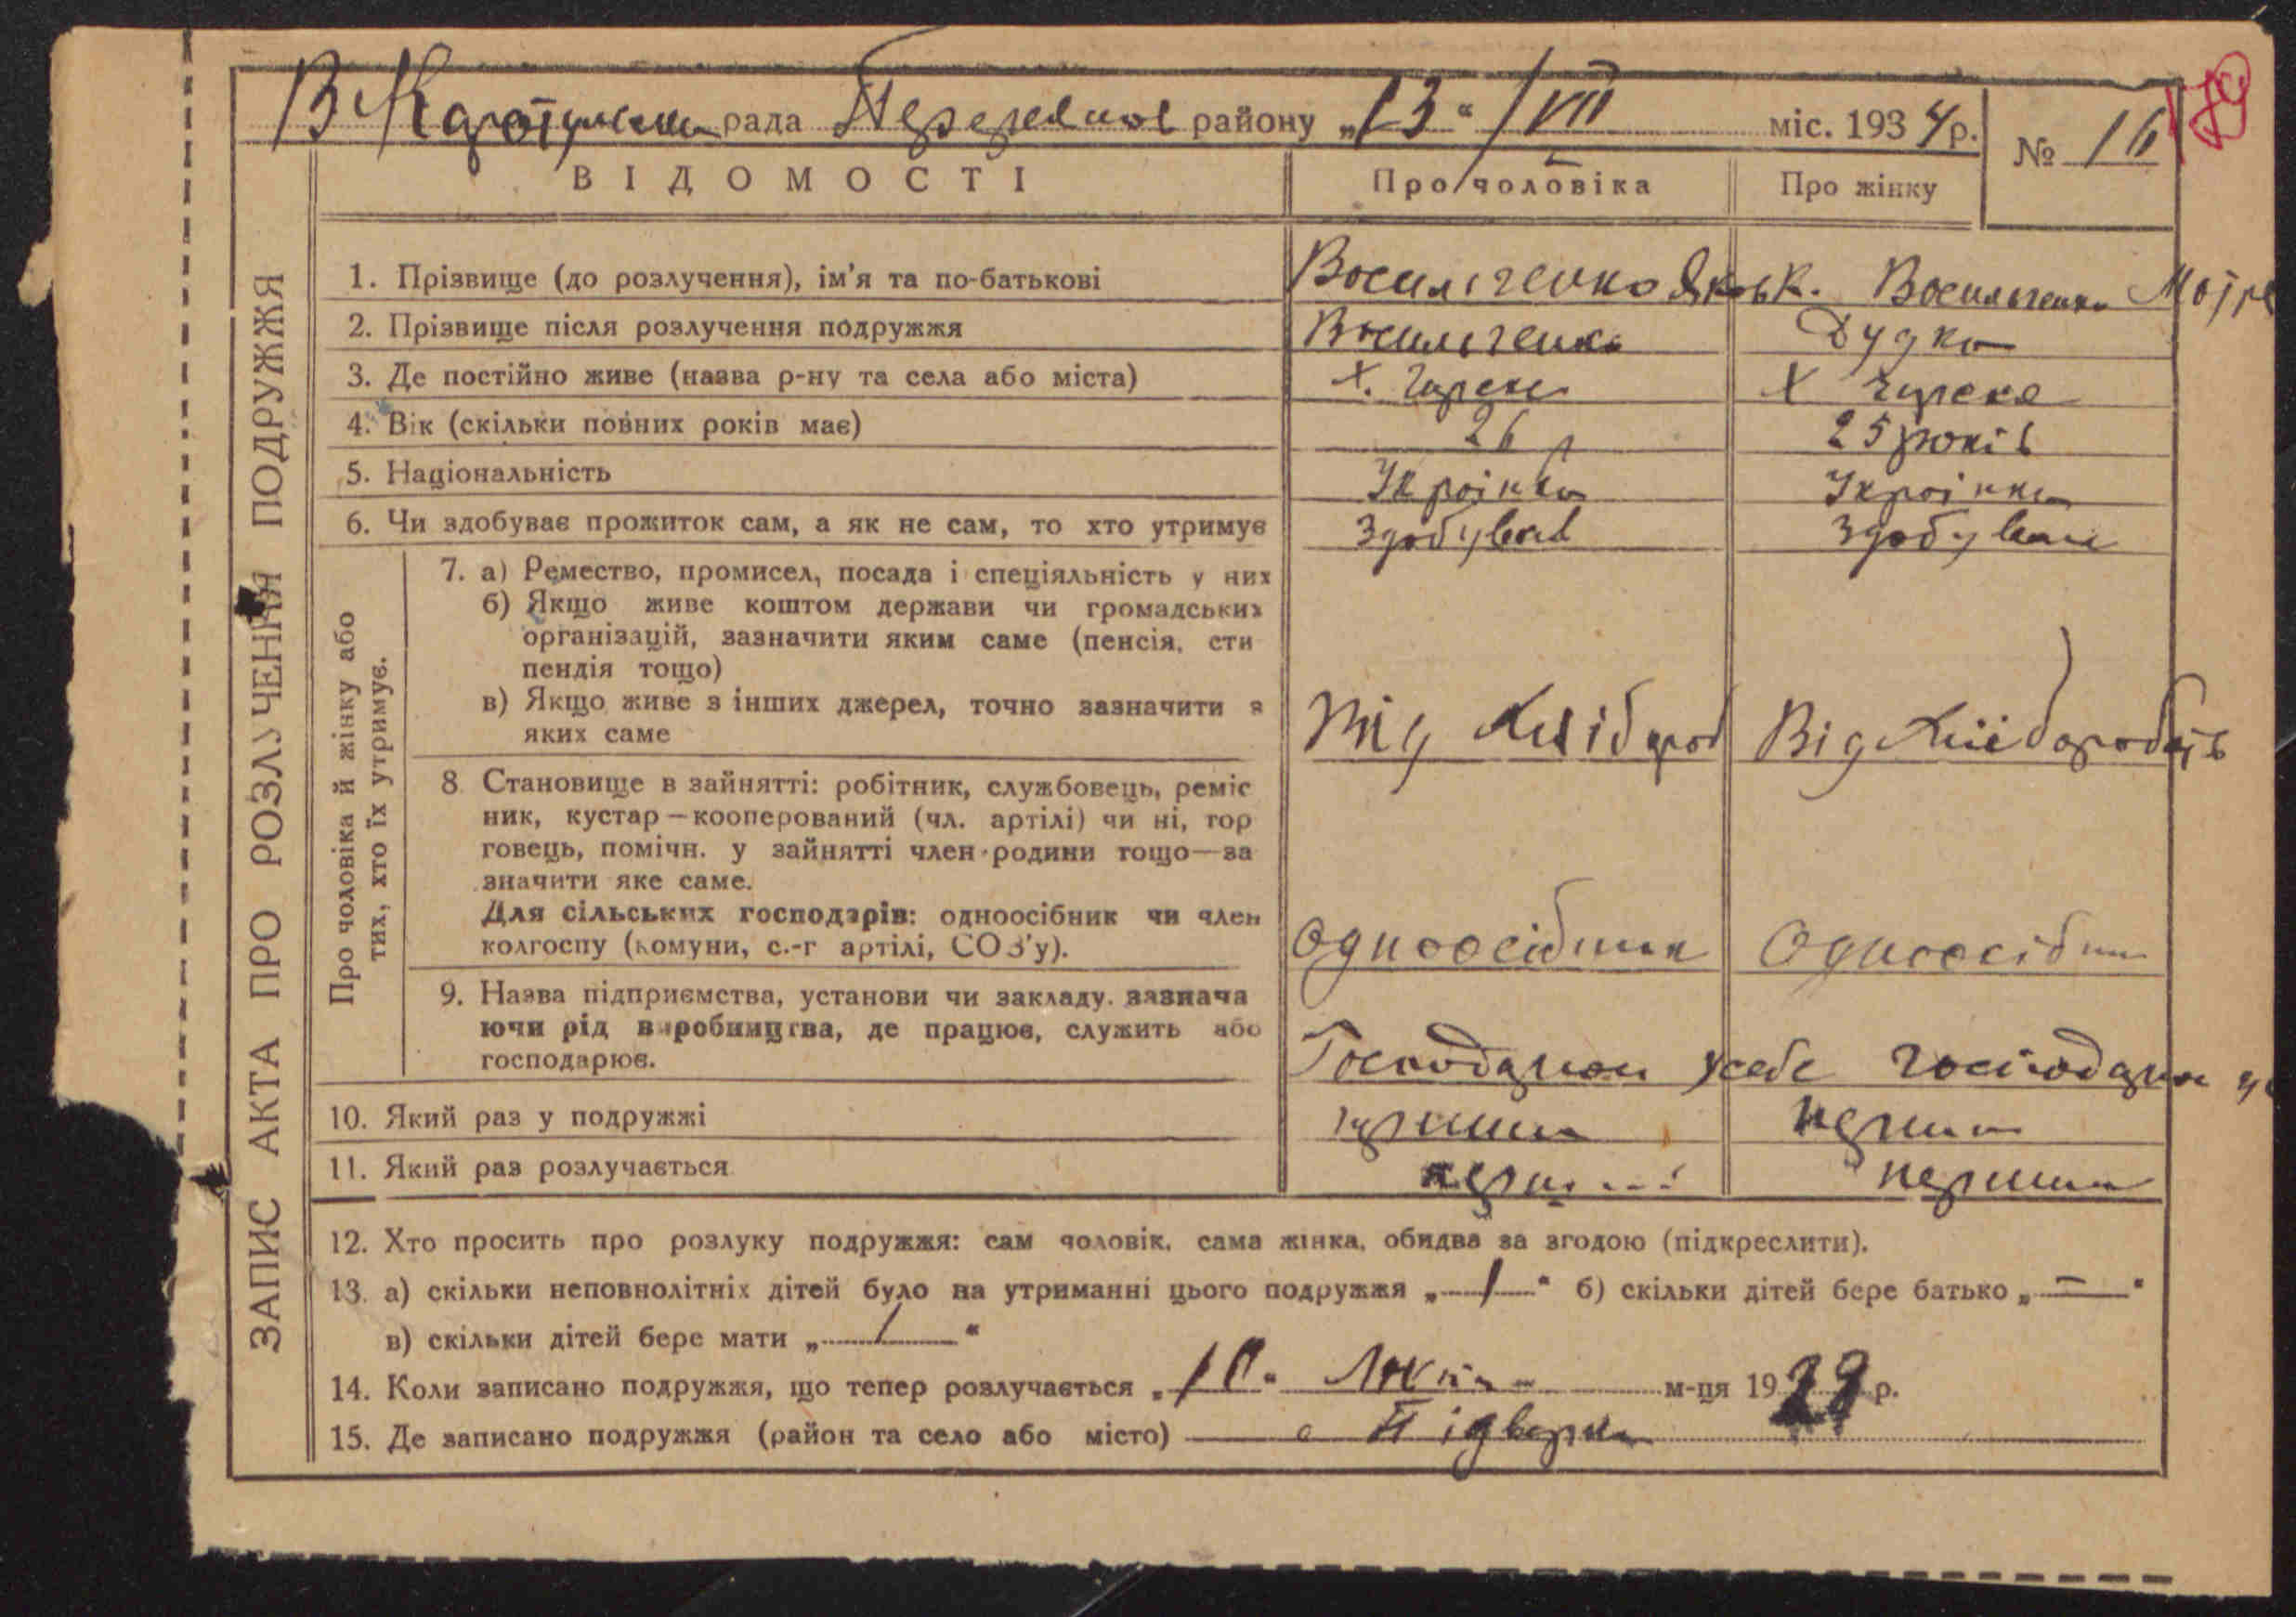 В Каратульська рада Переяслов району „13“ /VII міс. 1934 р.
№ 16
79
ВІДОМОСТІ Про чоловіка Про жінку
ЗАПИС АКТА ПРО РОЗЛУЧЕННЯ ПОДРУЖЖЯ
1. Прізвище (до розлучення), ім'я та по-батькові Восильченко Яков К. Восильченко Мотря
2. Прізвище після розлучення подружжя Восильченко Дудко
3. Де постійно живе (назва р-ну та села або міста) х. Гирске х Гирске
4. Вік (скільки повних років має) 26 25 років
5. Національність Україньк Українка
6. Чи здобуває прожиток сам, а як не сам, то хто утримує Здобував Здобувала
Про чоловіка й жінку або
тих, хто їх утримує.
7. а) Ремество, промисел, посада і спеціяльність у них
б) Якщо живе коштом держави чи громадських
організацій, зазначити яким саме (пенсія, сти
пендія тощо)
в) Якщо живе з інших джерел, точно зазначити з
яких саме Від Хлібороб Від Хліборобств
8 Становище в зайнятті: робітник, службовець, реміс
ник, кустар—кооперований (чл. артілі) чи ні, тор
говець, помічн. у зайнятті член родини тощо—за
значити яке саме.
Для сільських господарів: одноосібник чи член
колгоспу (комуни, с.-г артілі, СОЗ'у). Одноосібник Одноосібник
9. Назва підприємства, установи чи закладу. зазнача
ючи рід виробництва, де працює, служить або
господарює. Господарює у себе господарює у
10. Який раз у подружжі перший перший
11. Який раз розлучається перший перший
12. Хто просить про розлуку подружжя: сам чоловік, сама жінка, обидва за згодою (підкреслити).
13. а) скільки неповнолітніх дітей було на утриманні цього подружжя „1“ б) скільки дітей бере батько „—“
в) скільки дітей бере мати „1“
14. Коли записано подружжя, що тепер розлучається „10“ м-ця 1929 р.
15. Де записано подружжя (район та село або місто) с Підварки